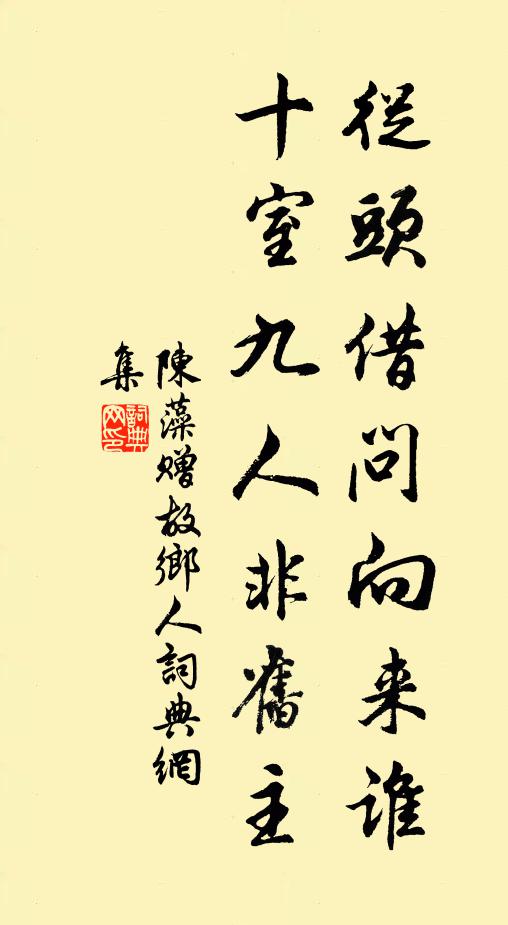 從頭借問向来誰
十室九人非舊主
陳藻贈故鄉人詞典網
集
詞典
网印